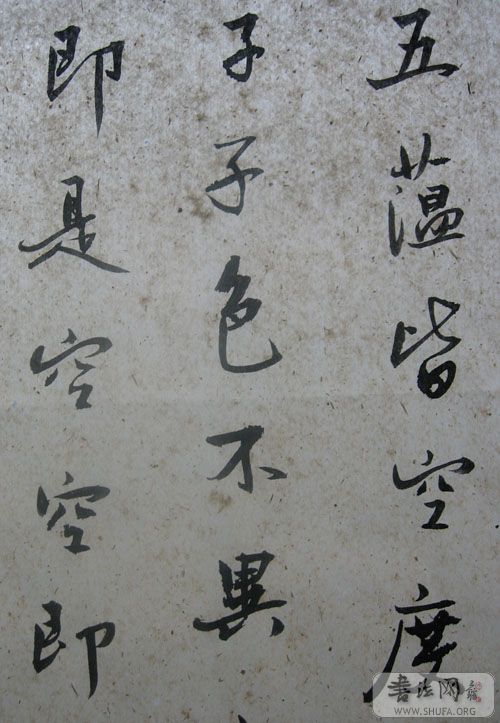 五薀皆空度
子子色不異
即是空空即
書法网
WWW.SHUFA.ORG